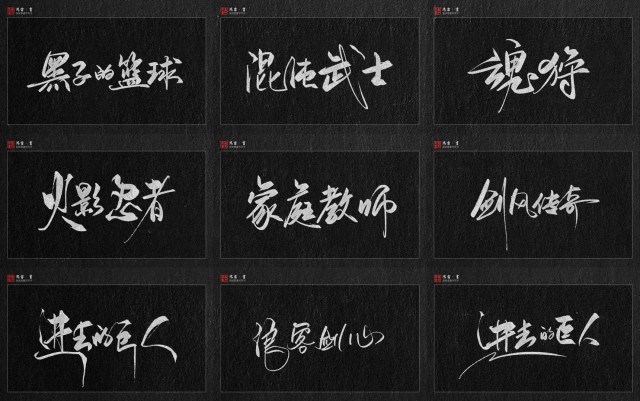 黑子的篮球
混沌武士
魂狩
火影忍者
家庭教师
剑风传奇
进击的巨人
浪客剑心
进击的巨人